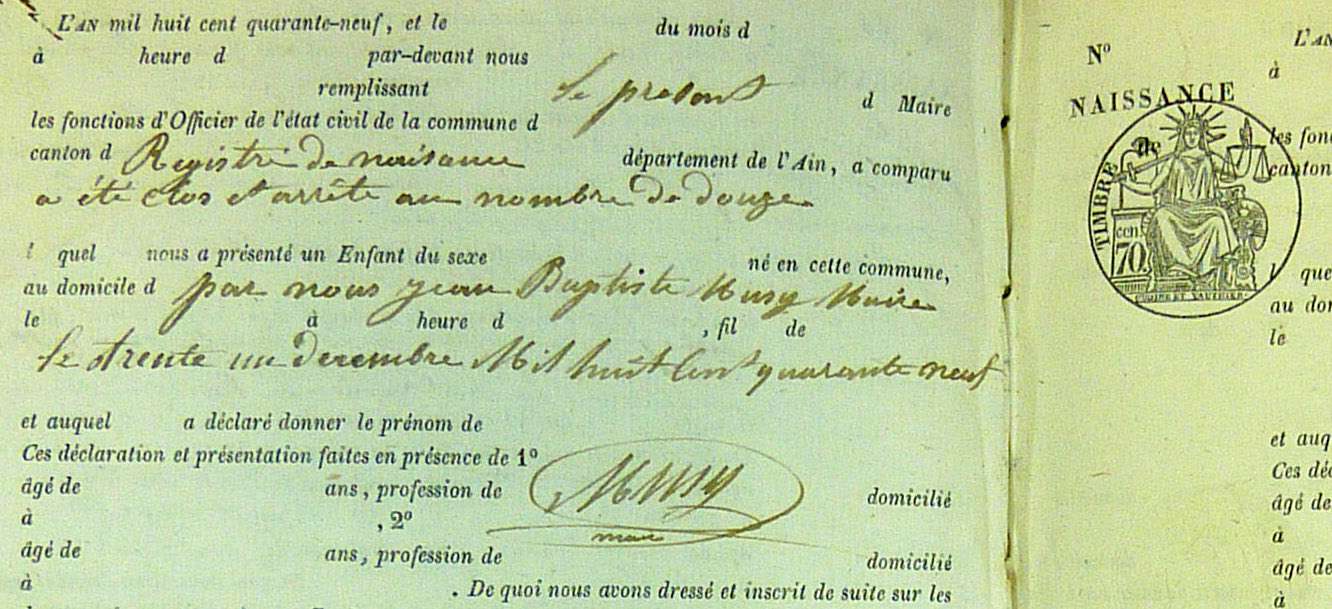 L'AN mil huit cent quarante-neuf, et le du mois d
à heure d par-devant nous
remplissant le present d Maire
les fonctions d'Officier de l'état civil de la commune d
canton d Registre de naisance département de l'Ain, a comparu
a été clos et arrêté au nombre de douze
l quel nous a présenté un Enfant du sexe né en cette commune,
au domicile d par nous jean Baptiste Musy Maire
le à heure d , fil de
le trente un decembre Mil huit Cent quarante neuf
et auquel a déclaré donner le prénom de
Ces déclaration et présentation faites en présence de 1°
âgé de ans, profession de Musy domicilié
à , 2° maire
âgé de ans, profession de domicilié
à . De quoi nous avons dressé et inscrit de suite sur les
N°
NAISSANCE
de
TIMBRE
70 cen
L'AN
à
les fon
canton
l que
au do
le
et auq
Ces dé
âgé de
à
âgé de
à